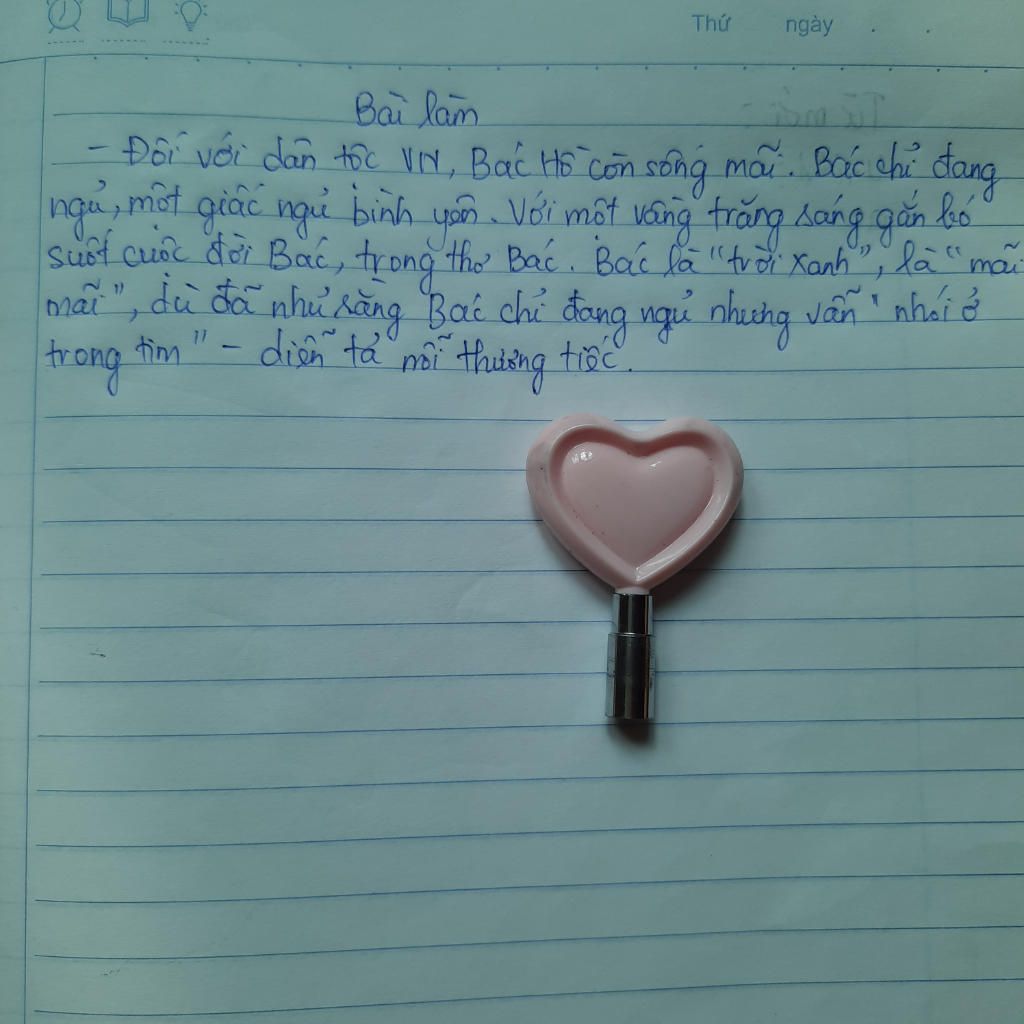 Thứ ngày . .
Bài làm
- Đối với dân tộc VN, Bác Hồ còn sống mãi. Bác chỉ đang
ngủ, một giấc ngủ bình yên. Với một vầng trăng sáng gắn bó
suốt cuộc đời Bác, trong thơ Bác. Bác là "trời xanh", là "mãi
mãi", dù đã như rằng Bác chỉ đang ngủ nhưng vẫn "nhói ở
trong tim" - diễn tả nỗi thương tiếc.